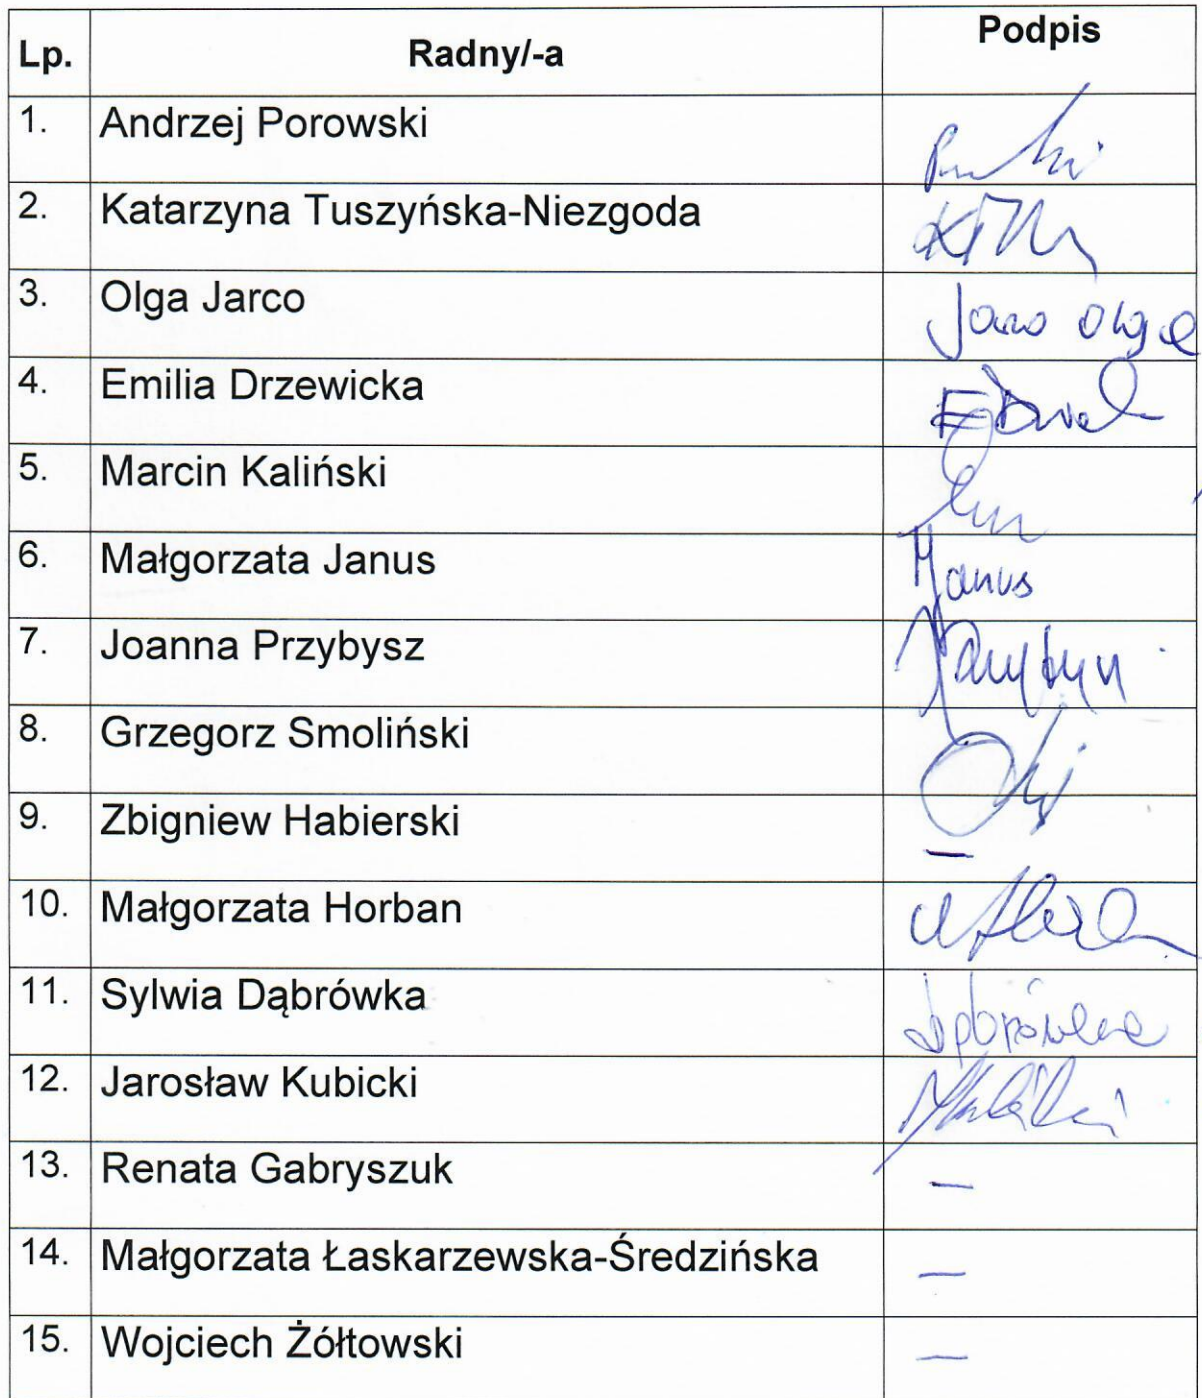 Lp. Radny/-a Podpis
1. Andrzej Porowski
2. Katarzyna Tuszyńska-Niezgoda
3. Olga Jarco Jarco Olga
4. Emilia Drzewicka
5. Marcin Kaliński
6. Małgorzata Janus MJanus
7. Joanna Przybysz
8. Grzegorz Smoliński
9. Zbigniew Habierski –
10. Małgorzata Horban
11. Sylwia Dąbrówka Dąbrówka
12. Jarosław Kubicki
13. Renata Gabryszuk –
14. Małgorzata Łaskarzewska-Średzińska –
15. Wojciech Żółtowski –